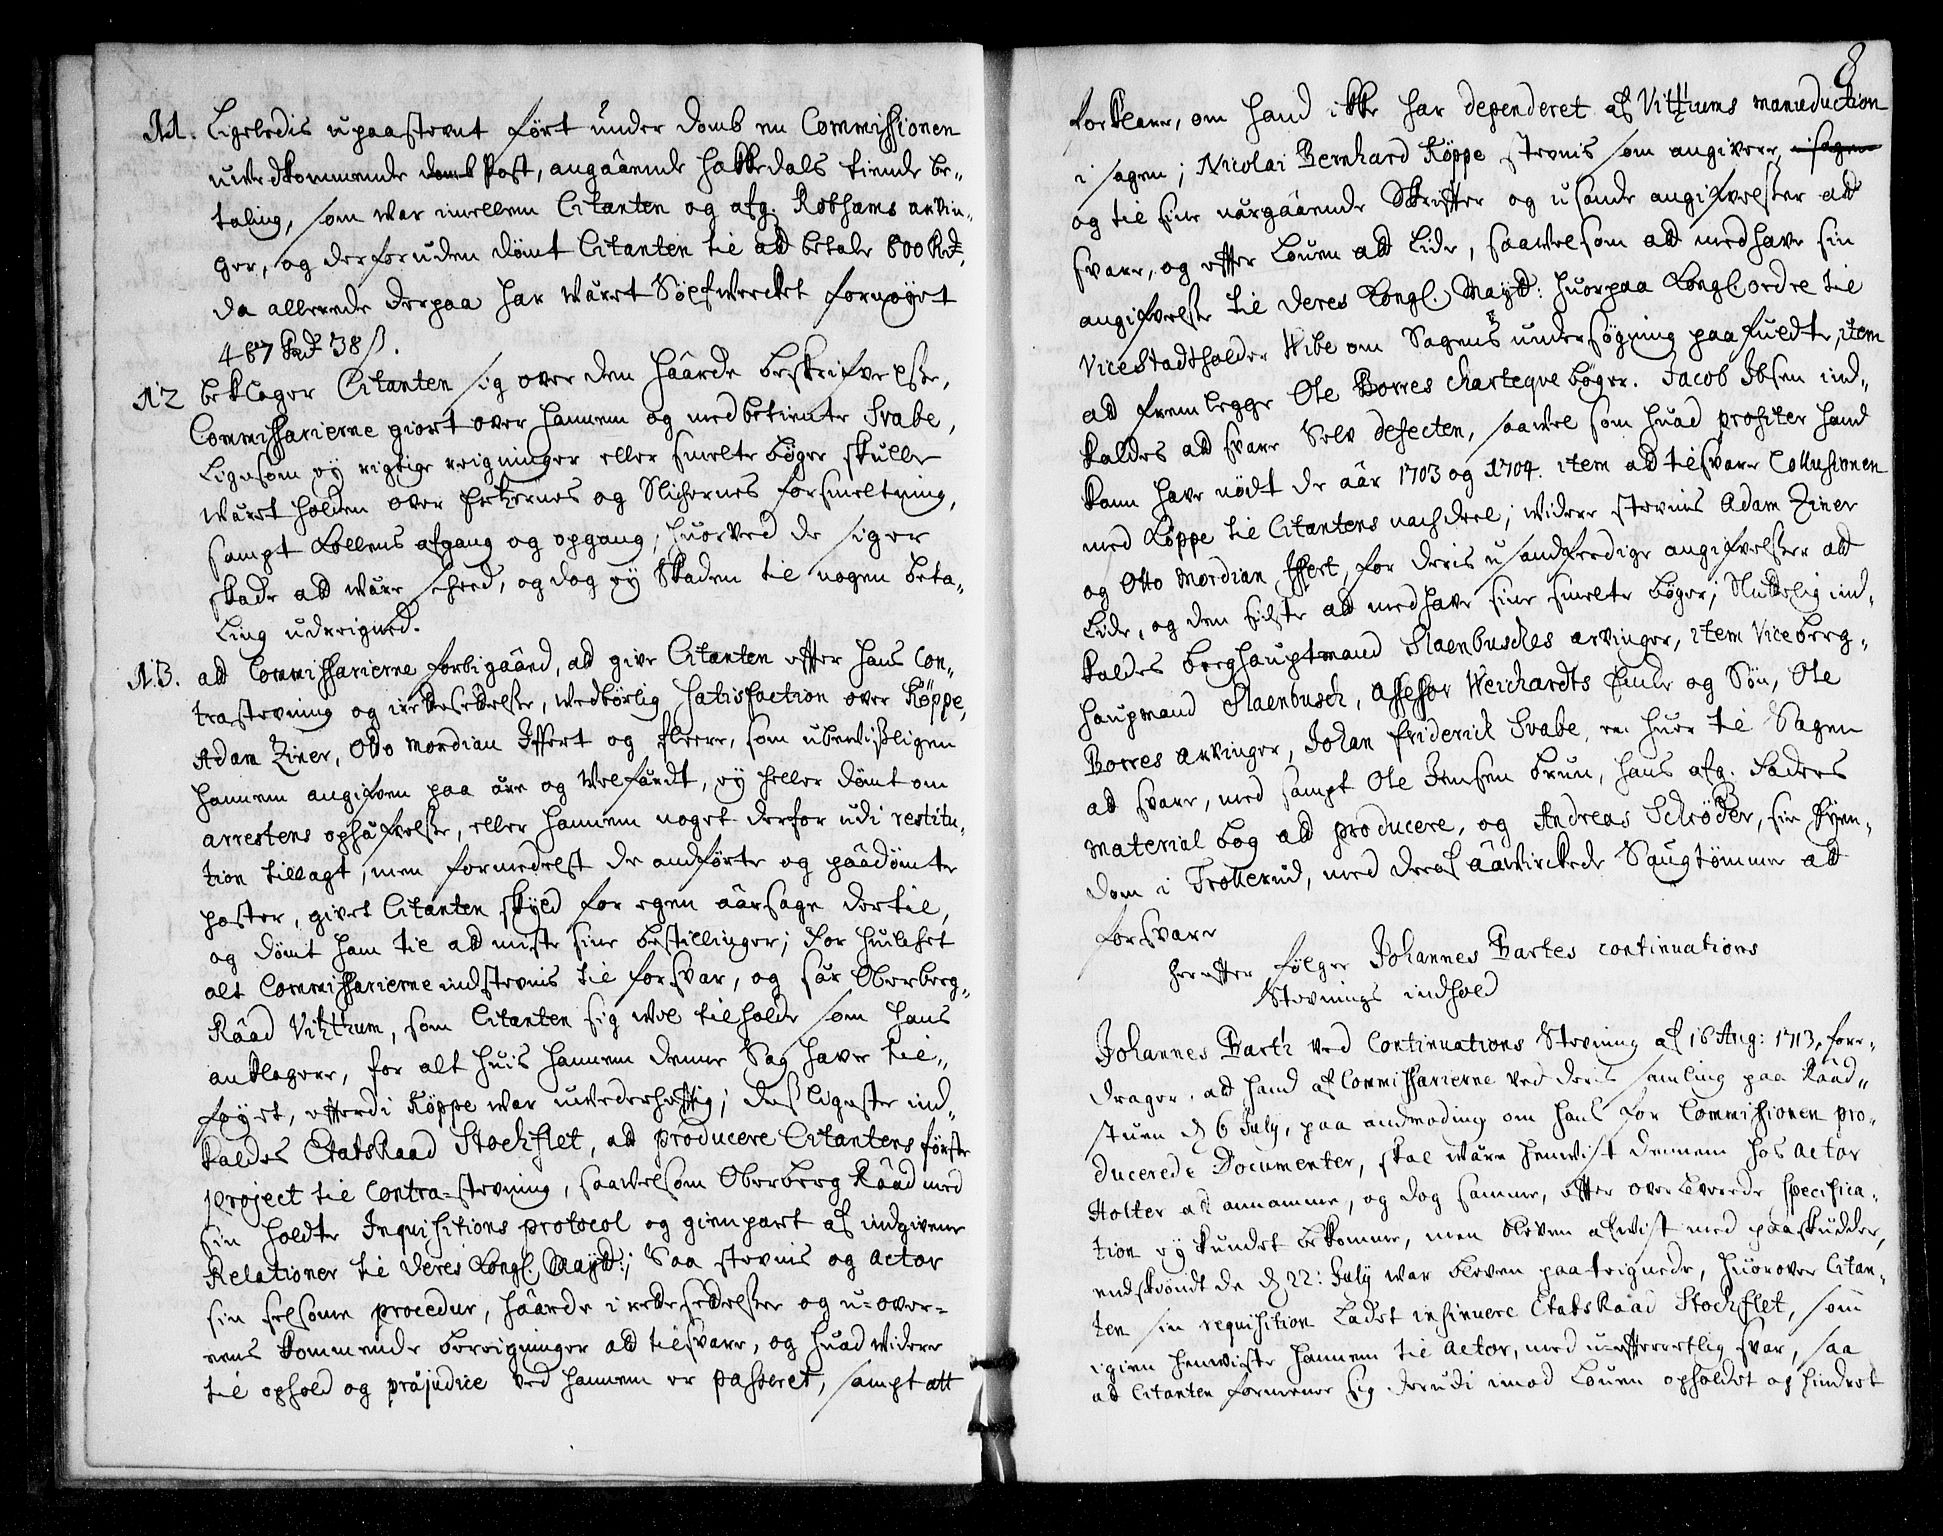 N.1. Ligeledis upaastevnt ført under domb en Commissionen
uvedkommende post, angaaende Hakkedals tiende be-
taling, som war imellem Citanten og afg. Robsams arvin-
ger, og derforuden dømt Citanten til att betale 800 Rdr,
da allerede derpaa har wäret Sølfwercket fornøyet
487 Rdr 38 ß.
N.2 beklager Citanten sig over den haarde beskrifvelse,
Commissarierne giort over hannem og medbetiente Svabe,
Ligesom ey rigtige reigninger eller smelte bøger skulle
wäret holden over Ertzernes og Slichernes forsmeltning,
sampt Kollens afgang og opgang, huorved de siger
skade att wäre scheed, og dog ey Skaden til nogen beta-
ling udreigned.
N.3. att Commissarierne forbigaaed, at give Citanten effter hans Con-
trastevning og irettesettelse, wedbørlig Satisfaction over Køppe,
Adam Ziner, Otto Mordian Iffert og fleere, som ubewißligen
hannem angifven paa äre og Velfärdt, ey heller dømt om
arrestens ophäfvelse, eller hannem noget derfor udi restitu-
tion tillagt, men formedelst de andførte og paadømte
poster, givet Citanten skyld for egen aarsage dertil,
og dømt ham til att miste sine bestillinger; For huilchet
alt Commissarierne indstevnis til forsvar, og för Oberberg-
Raad Vitzthum, som Citanten sig wil tilholde som hans
anklagere, for alt huis hannem denne Sag haver til-
føyet, efterdi Køppe war uvederhefftig; desligeste ind-
kaldes Etatsraad Stockflet, att producere Citantens første
project til Contra-stevning, saavelsom Oberberg Raad med
sin holdte Inquisitions protocol og gienpart af indgivene
Relationer til Deres Kongl. Mayt:; Saa stevnis og Actor
sin selsome procedur, haarde irettesettelser og u-over-
eens kommende bereigninger att tilsvare, og huad videre
til ophold og präjudice ved hannem er passeret, sampt att
8
forklare, om hand ikke har dependeret af Vitzthums manuduction
i sagen; Nicolai Bernhard Køppe stevnis som angivere, i sagen
og til sine närgaaende Skrifter og usande angifvelser att
svare, og effter Louen att lide, saavelsom att medhave sin
angifvelse til Deres Kongl. Mayt: huorpaa Kongl. ordre til
Vicestadtholder Wibe om Sagens undersøgning paafuldte, item
att fremlegge Ole Borres charteque bøger. Jacob Ibsen ind-
kaldes att svare Selv defecten, saavel som huad profiter hand
kann have nødt de aar 1703 og 1704. item att tilsvare Collusionen
med Køppe til Citantens nachdeel; widere stevnis Adam Ziner
og Otto Mordian Iffert, for deris usandferdige angifvelser att
lide, og den sidste att medhave sine smelte bøger; Sluttelig ind-
kaldes berghauptmand Slaenbusches arvinger, item Viceberg-
haupmand Slaenbusch, Assessor Weichardts Encke og Søn, Ole
Borres arvinger, Johan Friderich Svabe, en huer til Sagen
att svare, med sampt Ole Jensen Brun, hans afg. Faders
Material bog att producere, og Andreas Schrøder, sin Eyen-
dom i Trollerud, med deraf aavirckede Saugtømmer att
forsvare
her effter følger Johannes Bartes continuations
Stevnings indhold
Johannes Barth ved Continuations Stevning af 16 Aug: 1713, fore-
drager, att hand af Commissarierne ved deris samling paa Raad-
stuen d 6 July, paa andmoding om hans for Commissionen pro-
ducerede Documenter, skal wäre henvist dennem hos Actor
Holter at annamme, og dog samme, effter overleverede specifica-
tion ey kundet bekomme, men bleven afvist med paaskudder,
endskiøndt de d 22: July war bleven paateignede, huorover Citan-
ten sin requisition ladet insinuere Etatsraad Stockflet, som
igien henviste hannem til Actor, med u-effterrettlig svar, saa
at Citanten formener sig derudi imod Louen opholdet og hindret